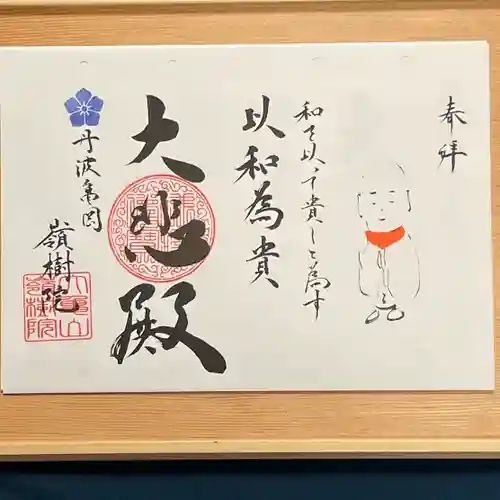 奉拝
和を以って貴しと為す
以和為貴
大悲殿
丹波亀岡
嶺樹院